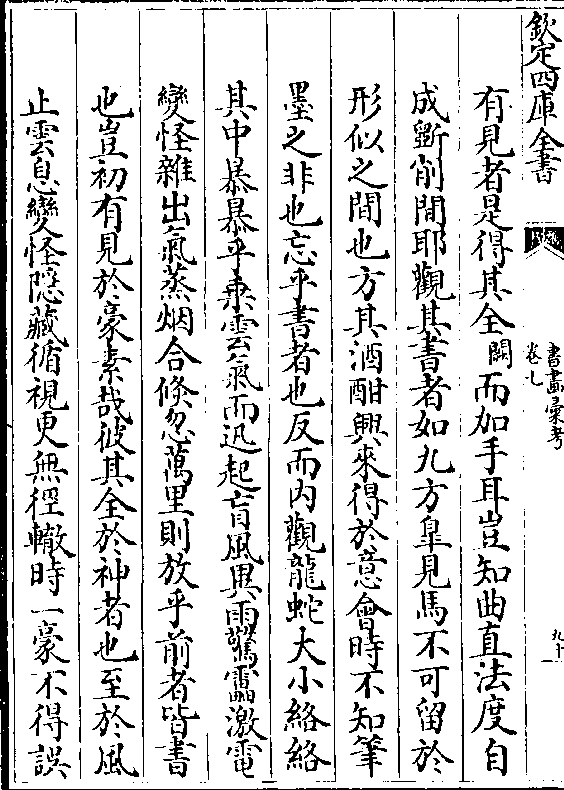 欽定四庫全書
書畫彙考
卷七
九十一
有見者是得其全闕而加手耳豈知曲直法度自
成斲削間耶觀其書者如九方臯見馬不可留於
形似之間也方其酒酣興來得於意會時不知筆
墨之非也忘乎書者也反而内觀龍蛇大小絡絡
其中暴暴乎乘雲氣而迅起盲風異雨驚靁激電
變怪雜出氣蒸烟合倐忽萬里則放乎前者皆書
也豈初有見於豪素哉彼其全於神者也至於風
止雲息變怪隱藏循視更無徑轍時一豪不得誤